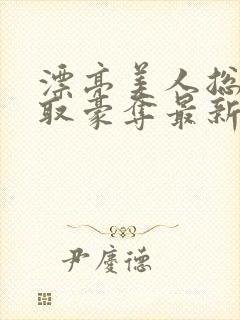 漂亮美人总
取豪夺最新
尹庆德